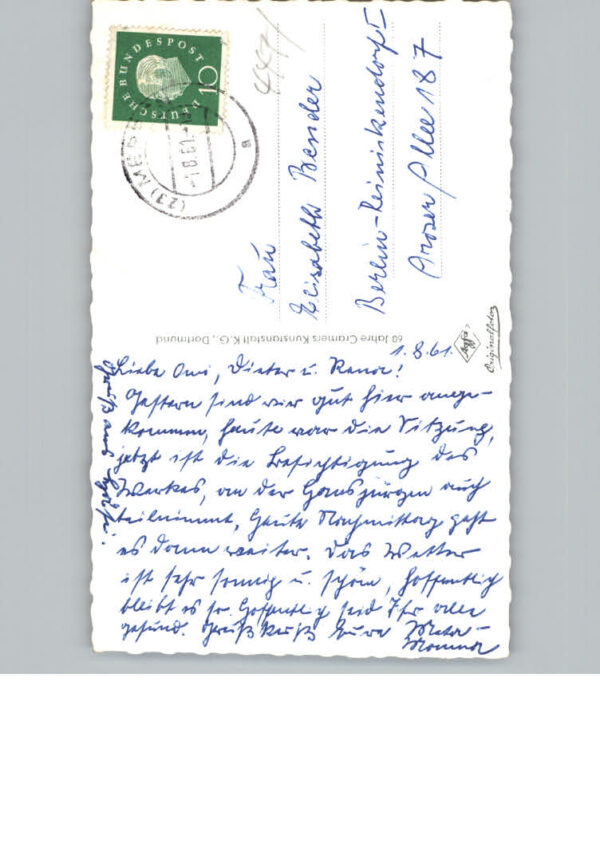 DEUTSCHE BUNDESPOST
10
(23) MEPPEN
-1.8.61.-
a
Frau
Elisabeth Bender
Berlin-Reinickendorf-
Aroser Allee 187
60 Jahre Cramers Kunstanstalt K.G., Dortmund
Agfa
Originalfoto
1.8.61.
Liebe Omi, Dieter u. Rena!
Gestern sind wir gut hier ange-
kommen, heute war die Sitzung,
jetzt ist die Besichtigung des
Werkes, an der Hansjürgen auch
teilnimmt, heute Nachmittag geht
es dann weiter. Das Wetter
ist sehr sonnig u. schön, hoffentlich
bleibt es so. Hoffentlich seid Ihr alle
gesund. Gruß Kuß Eure
Mama
Gruß und